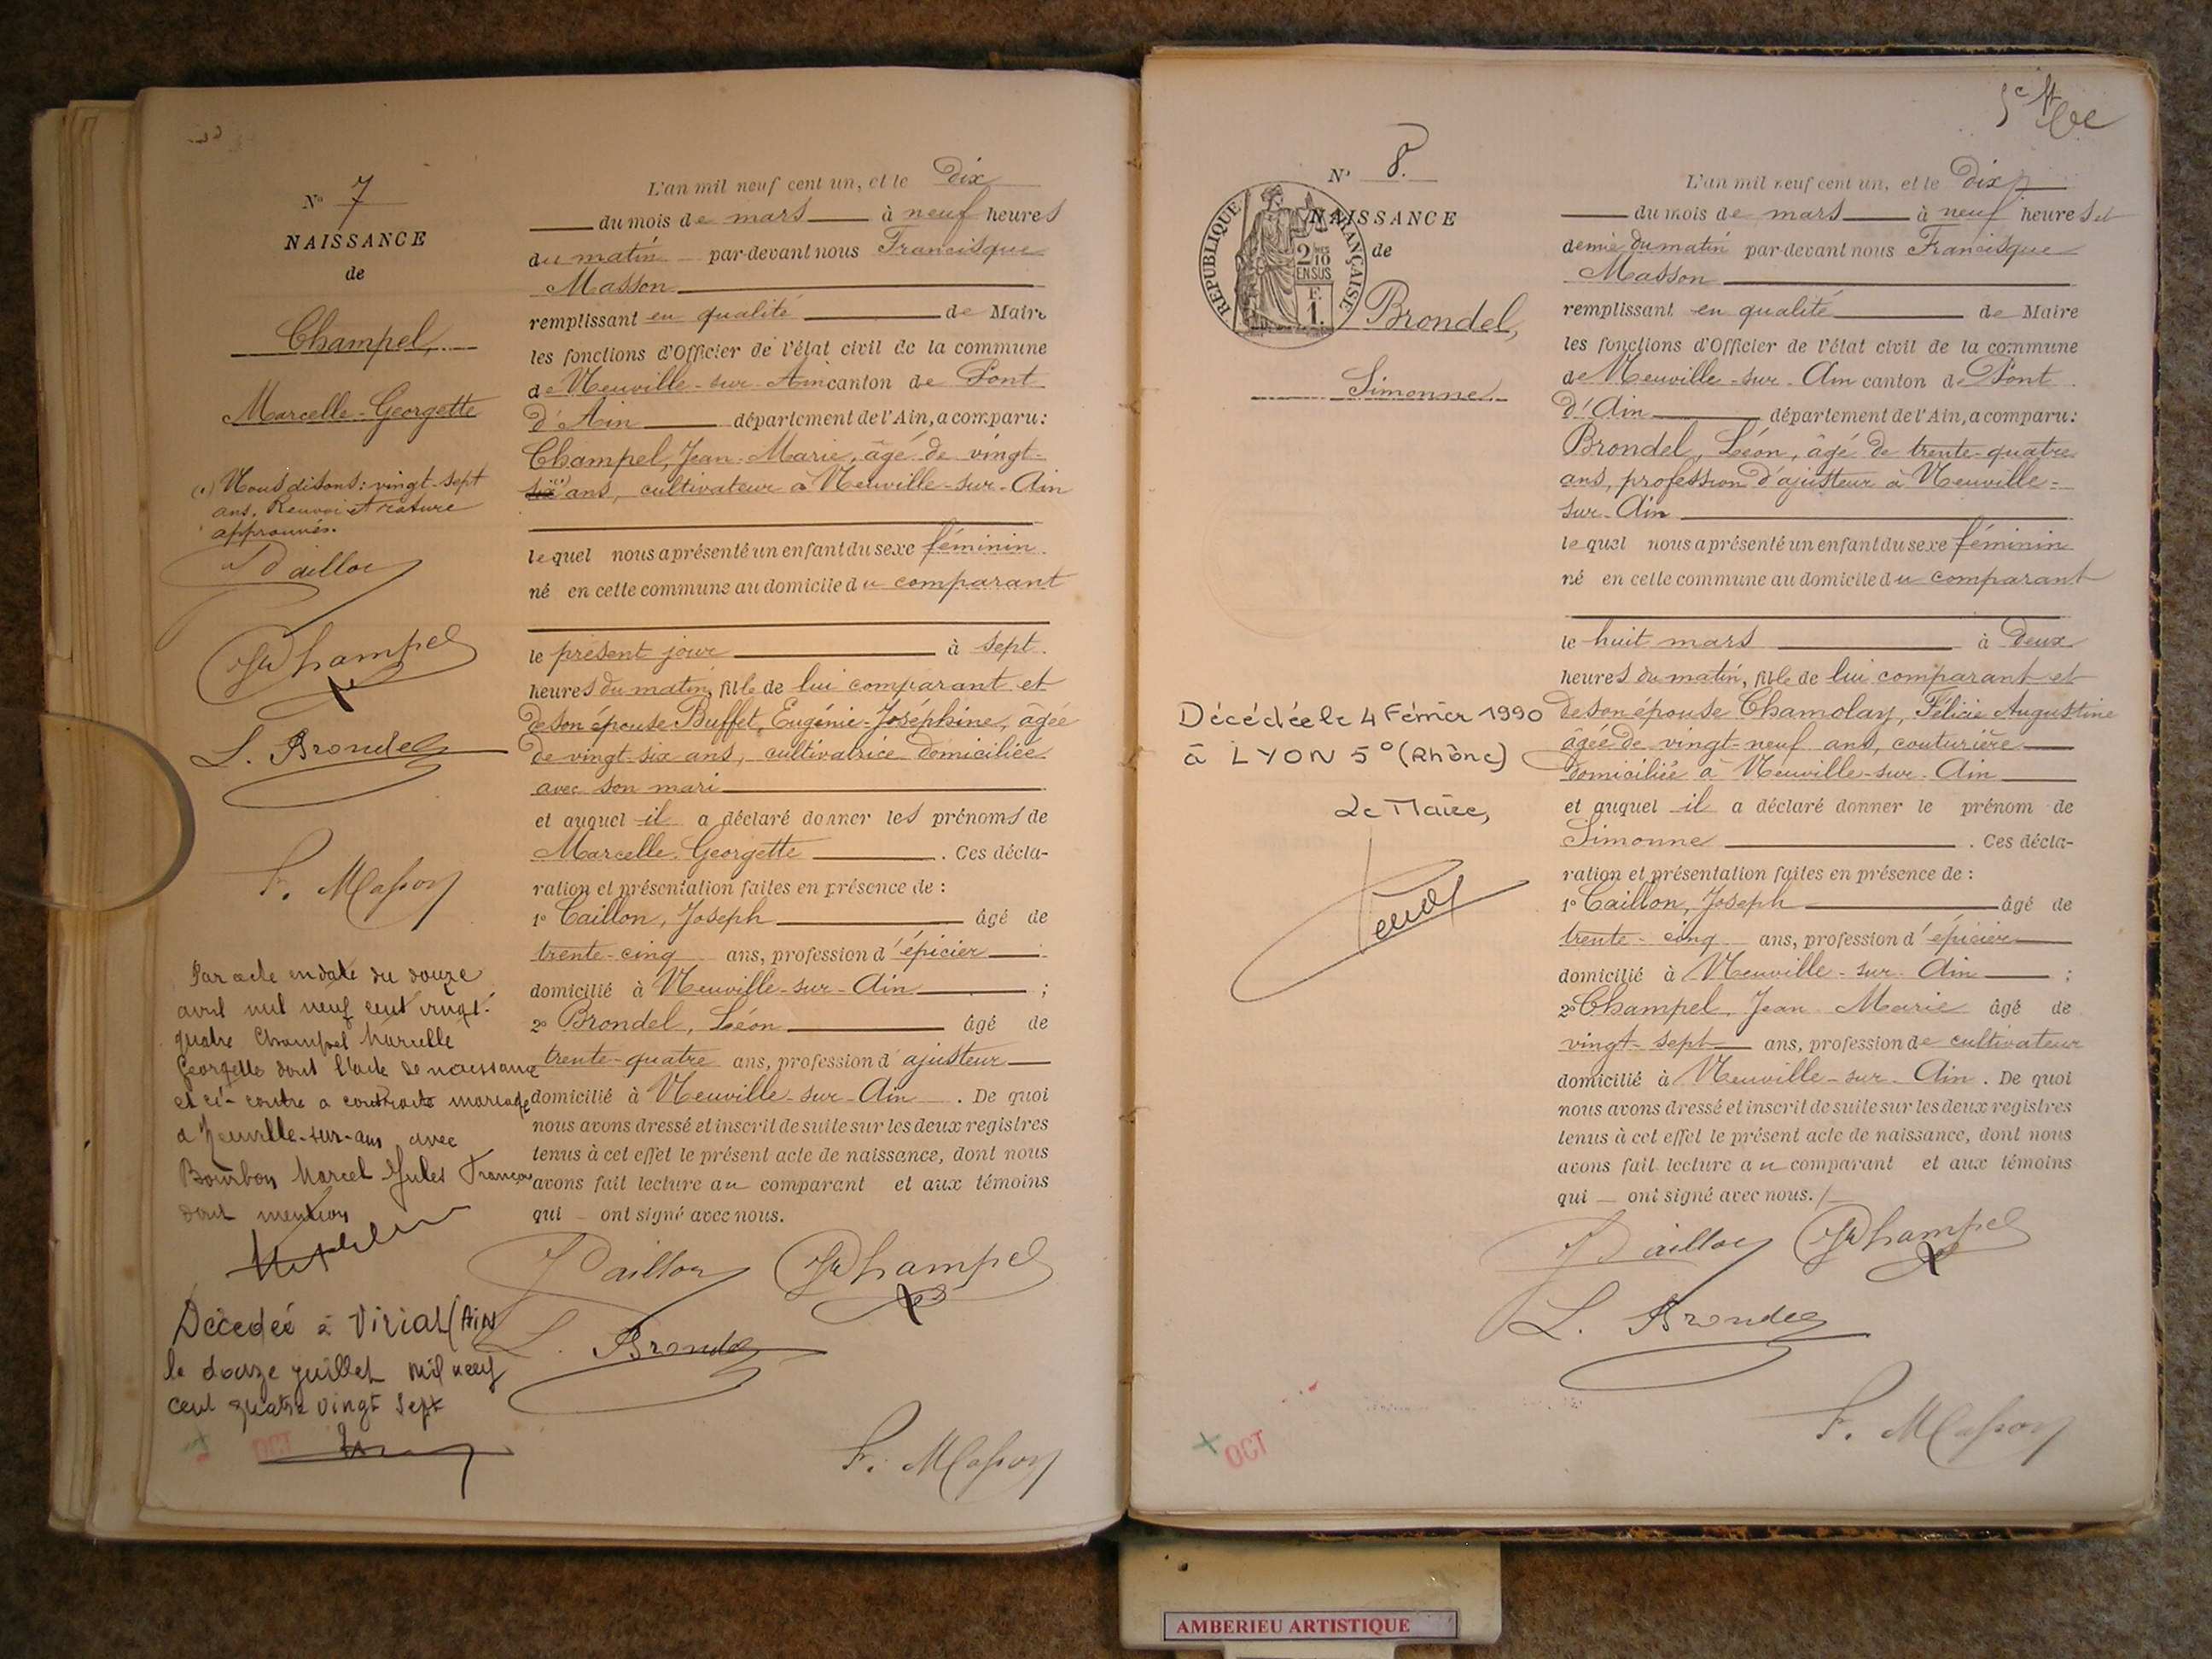 N° 7
NAISSANCE
de
Champel,
Marcelle-Georgette
(1) Nous disons: vingt-sept
ans. Renvoi et rature
approuvés.
J Caillon
JM Champel
L. Brondel
F. Masson
Par acte en date du douze
avril mil neuf cent vingt-
quatre Champel Marcelle
Georgette dont l'acte de naissance
est ci-contre a contracté mariage
à Neuville-sur-Ain avec
Bourbon Marcel Jules François
dont mention
Décédée à Viriat (Ain
le douze juillet mil neuf
cent quatre vingt sept
OCT
L'an mil neuf cent un, et le Dix
du mois de mars à neuf heures
du matin par-devant nous Francisque
Masson
remplissant en qualité de Maire
les fonctions d'Officier de l'état civil de la commune
de Neuville-sur-Ain canton de Pont
d'Ain département de l'Ain, a comparu:
Champel, Jean-Marie, âgé de vingt-
six (1) ans, cultivateur à Neuville-sur-Ain
lequel nous a présenté un enfant du sexe féminin
né en cette commune au domicile du comparant
le présent jour à sept
heures du matin, fille de lui comparant et
de son épouse Buffet, Eugénie-Joséphine, âgée
de vingt-six ans, cultivatrice domiciliée
avec son mari
et auquel il a déclaré donner les prénoms de
Marcelle-Georgette . Ces décla-
ration et présentation faites en présence de :
1° Caillon, Joseph âgé de
trente-cinq ans, profession d'épicier
domicilié à Neuville-sur-Ain ;
2° Brondel, Léon âgé de
trente-quatre ans, profession d'ajusteur
domicilié à Neuville-sur-Ain . De quoi
nous avons dressé et inscrit de suite sur les deux registres
tenus à cet effet le présent acte de naissance, dont nous
avons fait lecture au comparant et aux témoins
qui ont signé avec nous.
J Caillon JM Champel
L. Brondel
F. Masson
N° 8.
NAISSANCE
de
RÉPUBLIQUE FRANÇAISE
2/10
EN SUS
F.
1.
Brondel,
Simonne
Décédée le 4 Février 1990
à LYON 5° (Rhône)
Le Maire,
OCT
L'an mil neuf cent un, et le Dix
du mois de mars à neuf heures et
demie du matin par-devant nous Francisque
Masson
remplissant en qualité de Maire
les fonctions d'Officier de l'état civil de la commune
de Neuville-sur-Ain canton de Pont
d'Ain département de l'Ain, a comparu:
Brondel, Léon, âgé de trente-quatre
ans, profession d'ajusteur à Neuville-
sur-Ain
lequel nous a présenté un enfant du sexe féminin
né en cette commune au domicile du comparant
le huit mars à deux
heures du matin, fille de lui comparant et
de son épouse Chamolay, Félicie Augustine
âgée de vingt-neuf ans, couturière
domiciliée à Neuville-sur-Ain
et auquel il a déclaré donner le prénom de
Simonne . Ces décla-
ration et présentation faites en présence de :
1° Caillon, Joseph âgé de
trente-cinq ans, profession d'épicier
domicilié à Neuville-sur-Ain ;
2° Champel, Jean Marie âgé de
vingt-sept ans, profession de cultivateur
domicilié à Neuville-sur-Ain . De quoi
nous avons dressé et inscrit de suite sur les deux registres
tenus à cet effet le présent acte de naissance, dont nous
avons fait lecture au comparant et aux témoins
qui ont signé avec nous.
J Caillon JM Champel
L. Brondel
F. Masson
AMBERIEU ARTISTIQUE